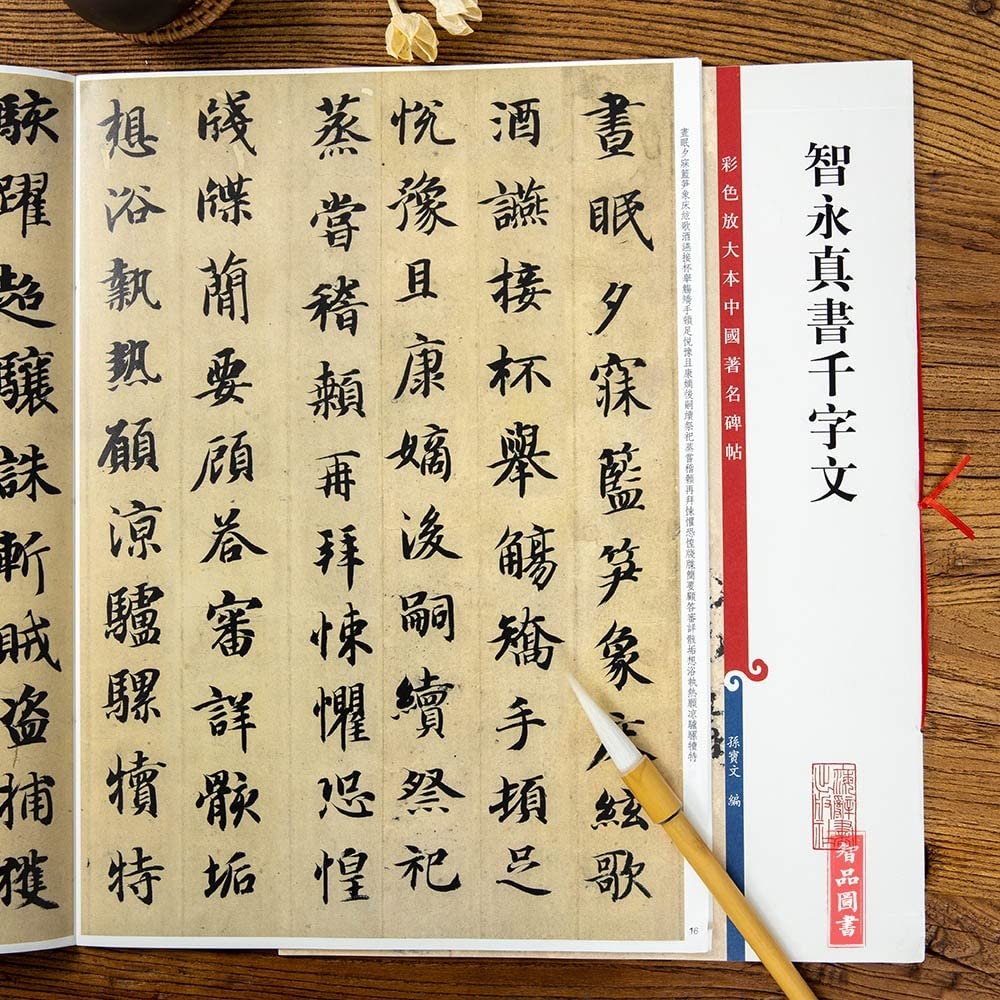 智永真書千字文
彩色放大本中國著名碑帖
孫寶文 編
海辭書
出版社
智品圖書
晝眠夕寐籃笋象床絃歌酒讌接杯舉觴矯手頓足悅豫且康嫡後嗣續祭祀蒸嘗稽顙再拜悚懼恐惶牋牒簡要顧答審詳骸垢想浴執熱願凉驢騾犢特
晝眠夕寐籃笋象床絃歌
酒讌接杯舉觴矯手頓足
悅豫且康嫡後嗣續祭祀
蒸嘗稽顙再拜悚懼恐惶
牋牒簡要顧答審詳骸垢
想浴執熱願凉驢騾犢特
駭躍超驤誅斬賊盜捕獲
16